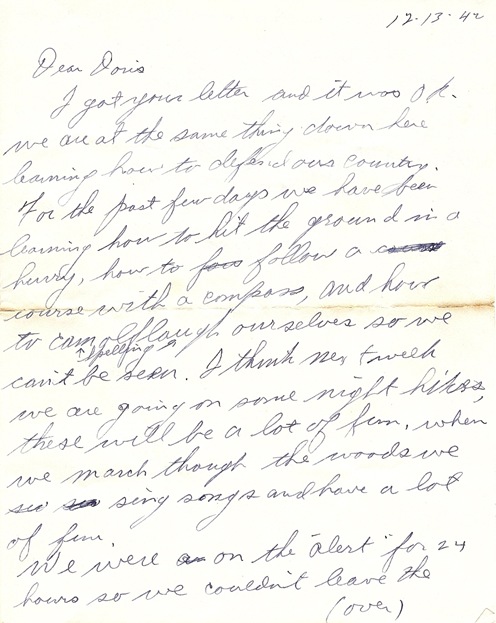 12-13-42
Dear Doris
I got your letter and it was O.K.
we are at the same thing down here
learning how to defend our country.
For the past few days we have been
learning how to hit the ground in a
hurry, how to follow a
course with a compass, and how
to camolflaugh ourselves so we
↑ spelling?
can't be seen. I think next week
we are going on some night hikes,
these will be a lot of fun, when
we march though the woods we
sing songs and have a lot
of fun.
We were on the "alert" for 24
hours so we couldn't leave the
(over)